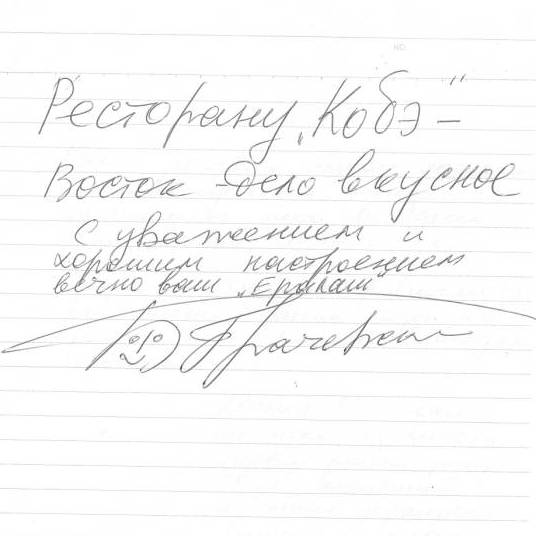 Ресторану „Кобэ“ –
Восток - дело вкусное
С уважением и
хорошим настроением
вечно ваш „Ералаш“
Грачевский